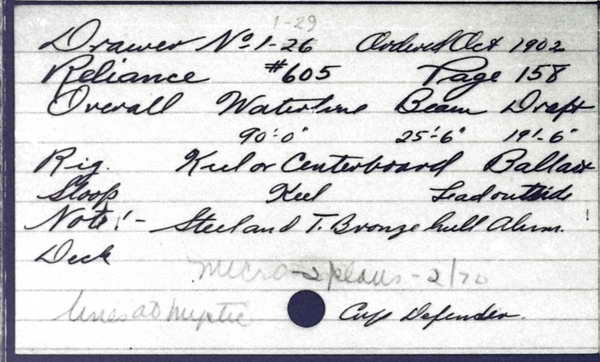 1-29
Drawer No 1-26 Ordered Oct 1902
Reliance #605 Page 158
Overall Waterline Beam Draft
90'-0" 25'-6" 19'-6"
Rig. Keel or Centerboard Ballast
Sloop Keel Lead outside
Note:- Steel and T. Bronze hull Alum.
Deck
micro-2 plans-2/70
lines at Mystic
Cup Defender.